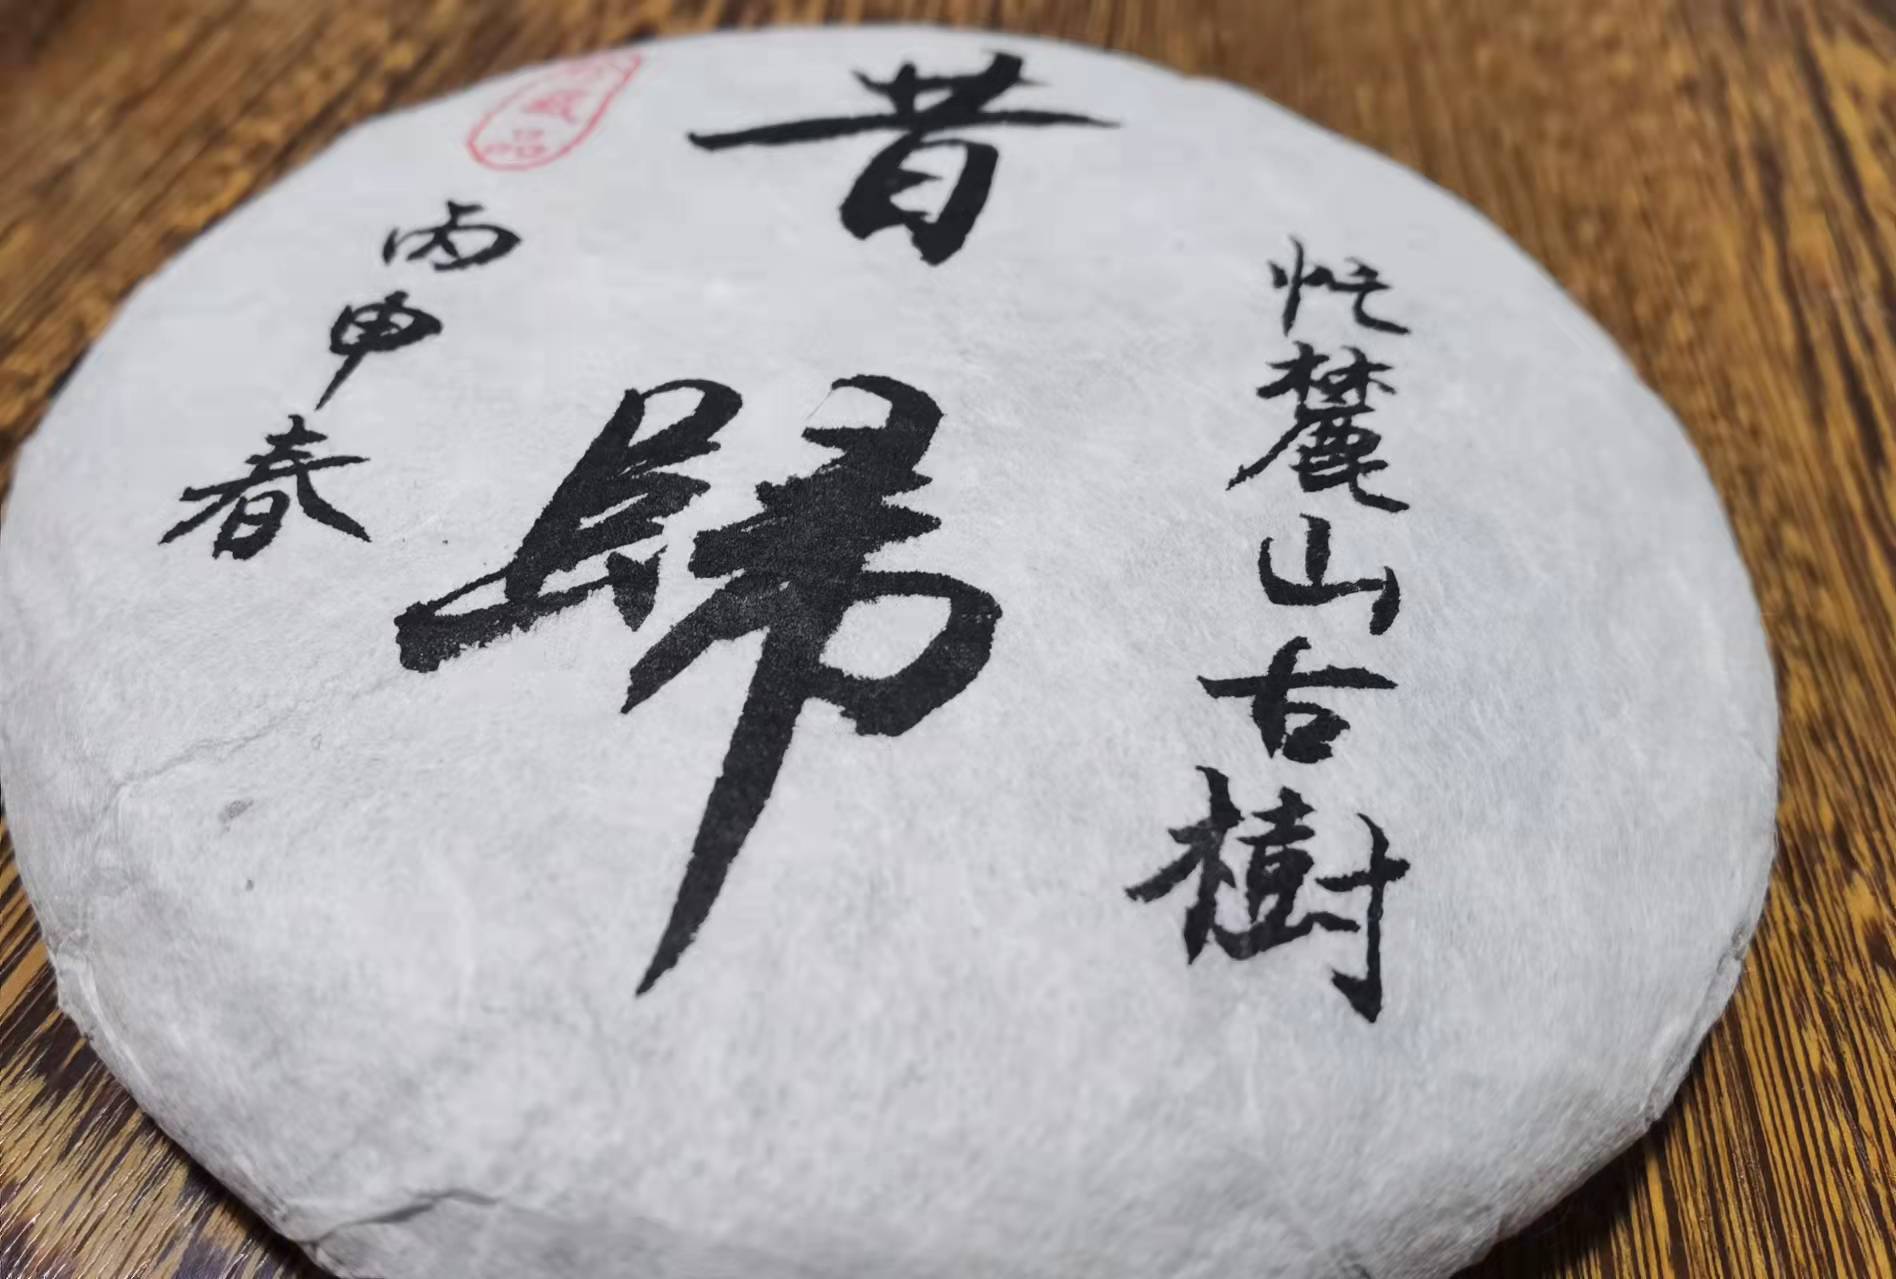 忙麓山古樹
昔歸
丙申春
藏品